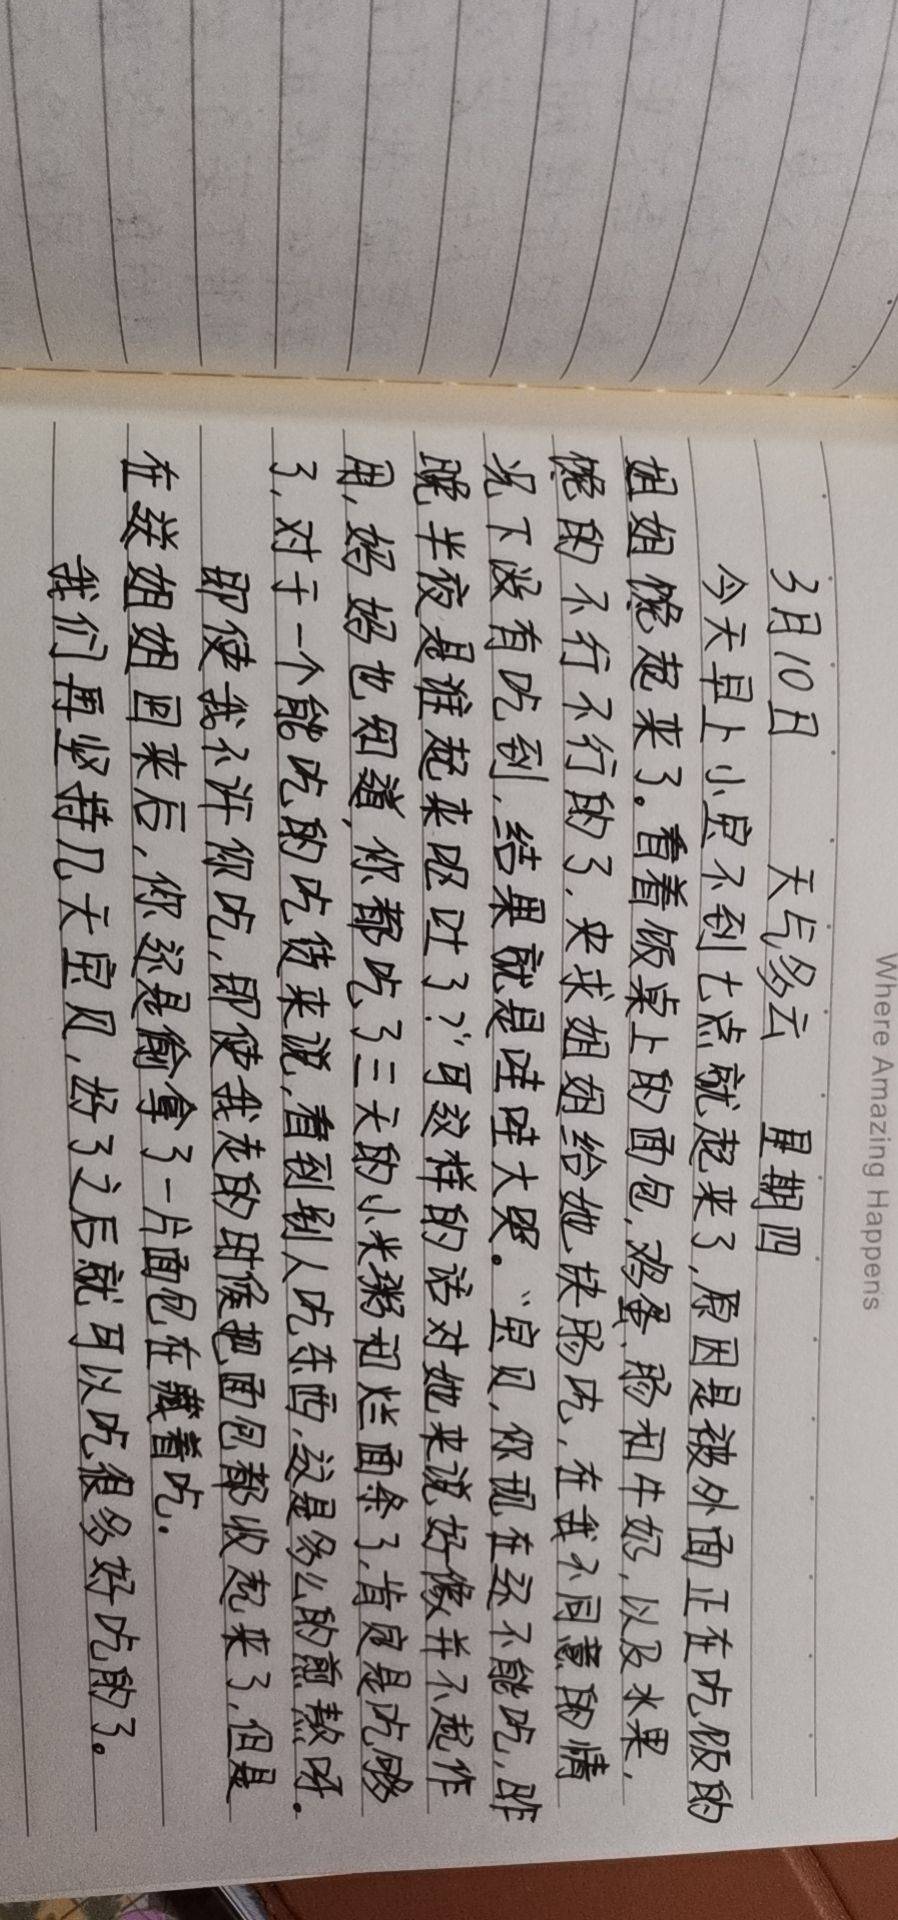 Where Amazing Happens
3月10日 天气多云 星期四
今天早上小宝不到七点就起来了，原因是被外面正在吃饭的
姐姐馋起来了。看着饭桌上的面包、鸡蛋、肠和牛奶，以及水果，
馋的不行不行的了，来求姐姐给她块肠吃，在我不同意的情
况下没有吃到，结果就是哇哇大哭。“宝贝，你现在还不能吃，昨
晚半夜是谁起来呕吐了？”可这样的话对她来说好像并不起作
用，妈妈也知道，你都吃了三天的小米粥和烂面条了，肯定是吃够
了，对于一个能吃的吃货来说，看到别人吃东西，这是多么的煎熬呀。
即使我不许你吃，即使我走的时候把面包都收起来了，但是
在送姐姐回来后，你还是偷拿了一片面包在藏着吃。
我们再坚持几天宝贝，好了之后就可以吃很多好吃的了。